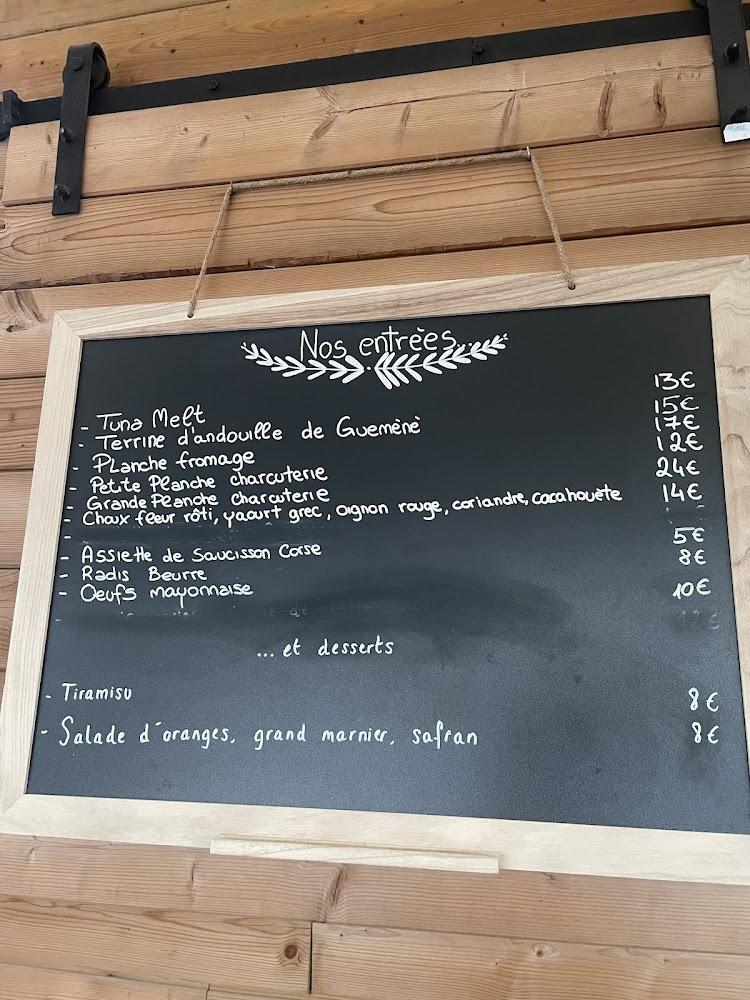 Nos entrèes...
- Tuna Melt 13€
- Terrine d'andouille de Guemènè 15€
- Planche fromage 17€
- Petite Planche charcuterie 12€
- Grande Planche charcuterie 24€
- Choux fleur rôti, yaourt grec, oignon rouge, coriandre, cacahouète 14€
-
- Assiette de Saucisson Corse 5€
- Radis Beurre 8€
- Oeufs mayonnaise 10€
... et desserts
- Tiramisu 8€
- Salade d'oranges, grand marnier, safran 8€